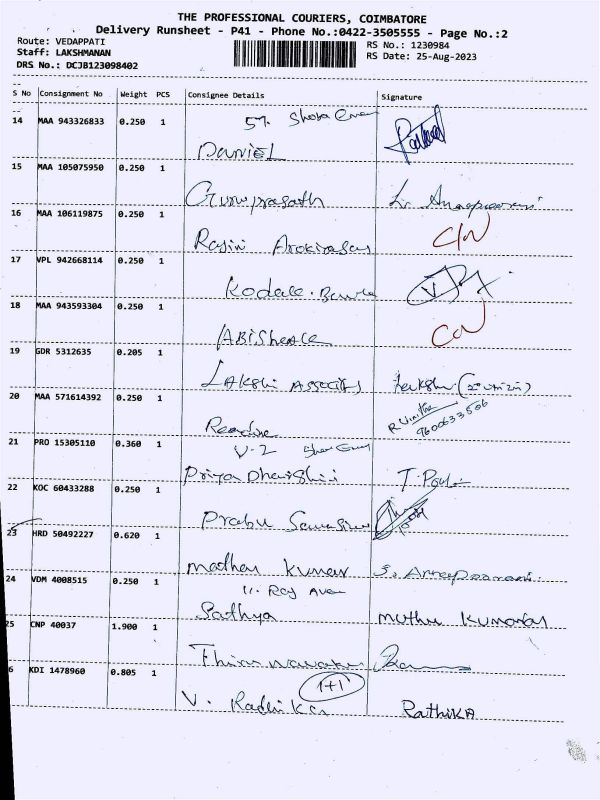 THE PROFESSIONAL COURIERS, COIMBATORE
Delivery Runsheet - P41 - Phone No.:0422-3505555 - Page No.:2
Route: VEDAPPATI
Staff: LAKSHMANAN
DRS No.: DCJB123098402
RS No.: 1230984
RS Date: 25-Aug-2023
S No Consignment No Weight PCS Consignee Details Signature
14 MAA 943326833 0.250 1 57.
Daniel
15 MAA 105075950 0.250 1
Guruprasath
16 MAA 106119875 0.250 1
Rajin Arokiyasamy
17 VPL 942668114 0.250 1
18 MAA 943593304 0.250 1
19 GDR 5312635 0.205 1
LAKShi
20 MAA 571614392 0.250 1 R Vinitha
9600633506
21 PRO 15305110 0.360 1 V-2
Priya Dharshini
22 KOC 60433288 0.250 1
Prabu
23 HRD 50492227 0.620 1
madhan Kumar S. Annapoorani
24 VDM 4008515 0.250 1 11. Raj Aven
Sathya muthu Kumaran
25 CNP 40037 1.900 1
6 KDI 1478960 0.805 1 1+1
V. Radhika RathiKA